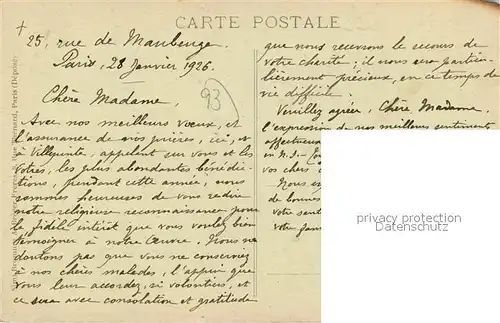 CARTE POSTALE
25, rue de Maubeuge.
Paris, 28 Janvier 1926.
93
Chère Madame,
Avec nos meilleurs vœux, et
l'assurance de nos prières, ici, et
à Villepinte, appelant sur vous et les
vôtres, les plus abondantes bénédic-
tions, pendant cette année, nous
sommes heureuses de vous redire
notre religieuse reconnaissance pour
le fidèle intérêt que vous voulez bien
témoigner à notre Œuvre. Nous ne
doutons pas que vous ne conserviez
à nos chères malades, l'appui que
vous leur accordez, si volontiers, et
ce sera avec consolation et gratitude
que nous recevrons le secours de
votre charité ; il nous sera particu-
lièrement précieux, en ce temps de
vie difficile.
Veuillez agréer, Chère Madame,
l'expression de nos meilleurs sentiments
affectueux
en N.-S.
vos chers
Nous
de bonnes
votre
votre
privacy protection
samlerport.de